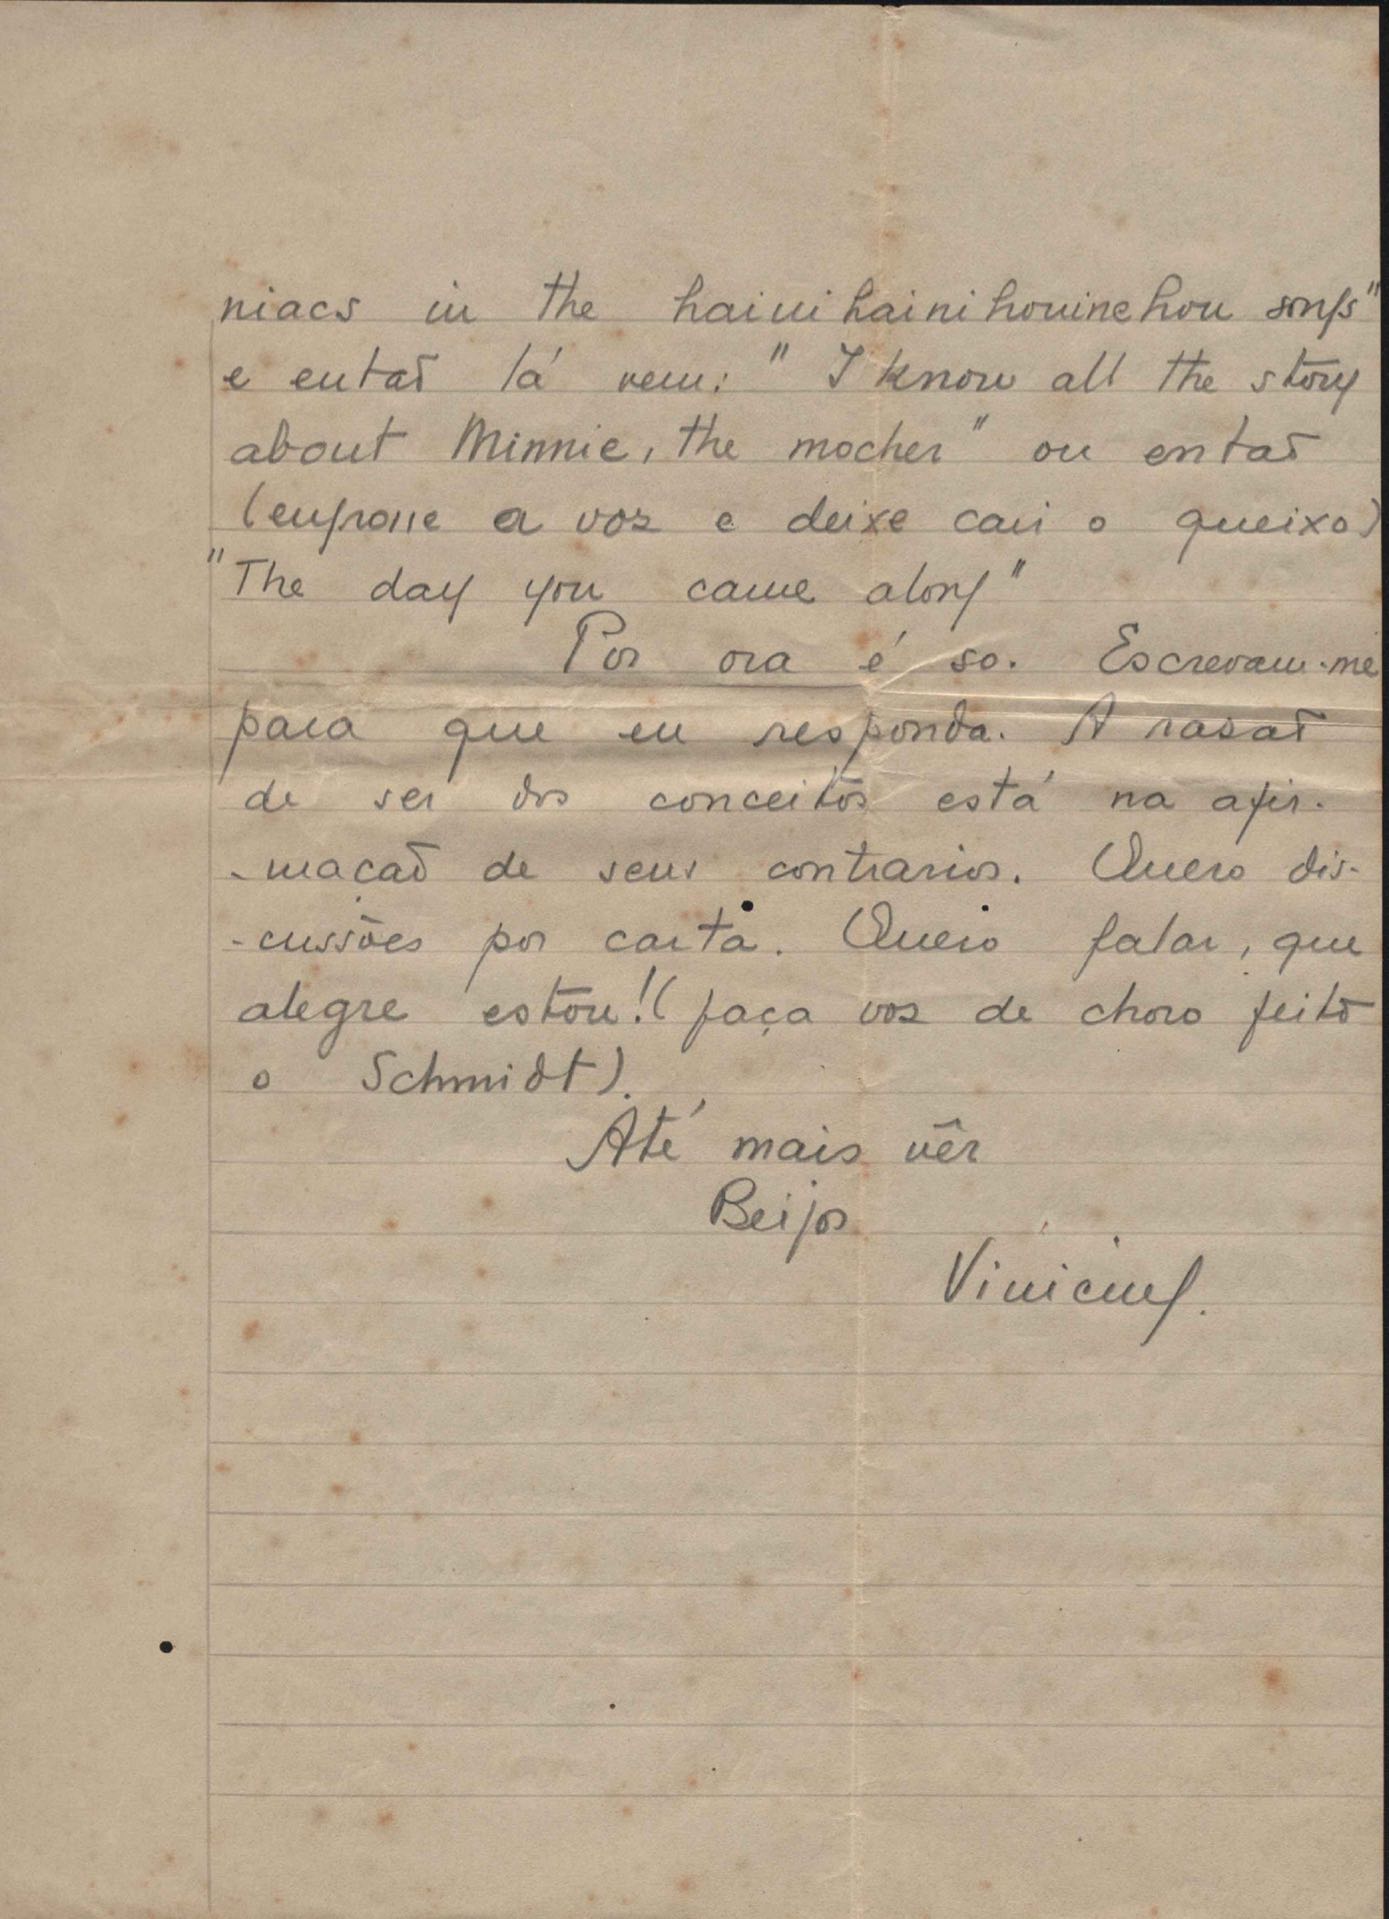 niacs in the hainihainihouinehou songs"
e então lá vem: "I know all the story
about Minnie, the mocher" ou então
(engrosse a voz e deixe cair o queixo)
"The day you came along"
Por ora é so. Escrevam-me
para que eu responda. A razão
de ser dos conceitos está na afir-
-mação de seus contrarios. Quero dis-
-cussões por carta. Quero falar, que
alegre estou! (faça voz de choro feito
o Schmidt).
Até mais vêr
Beijos
Vinicius.